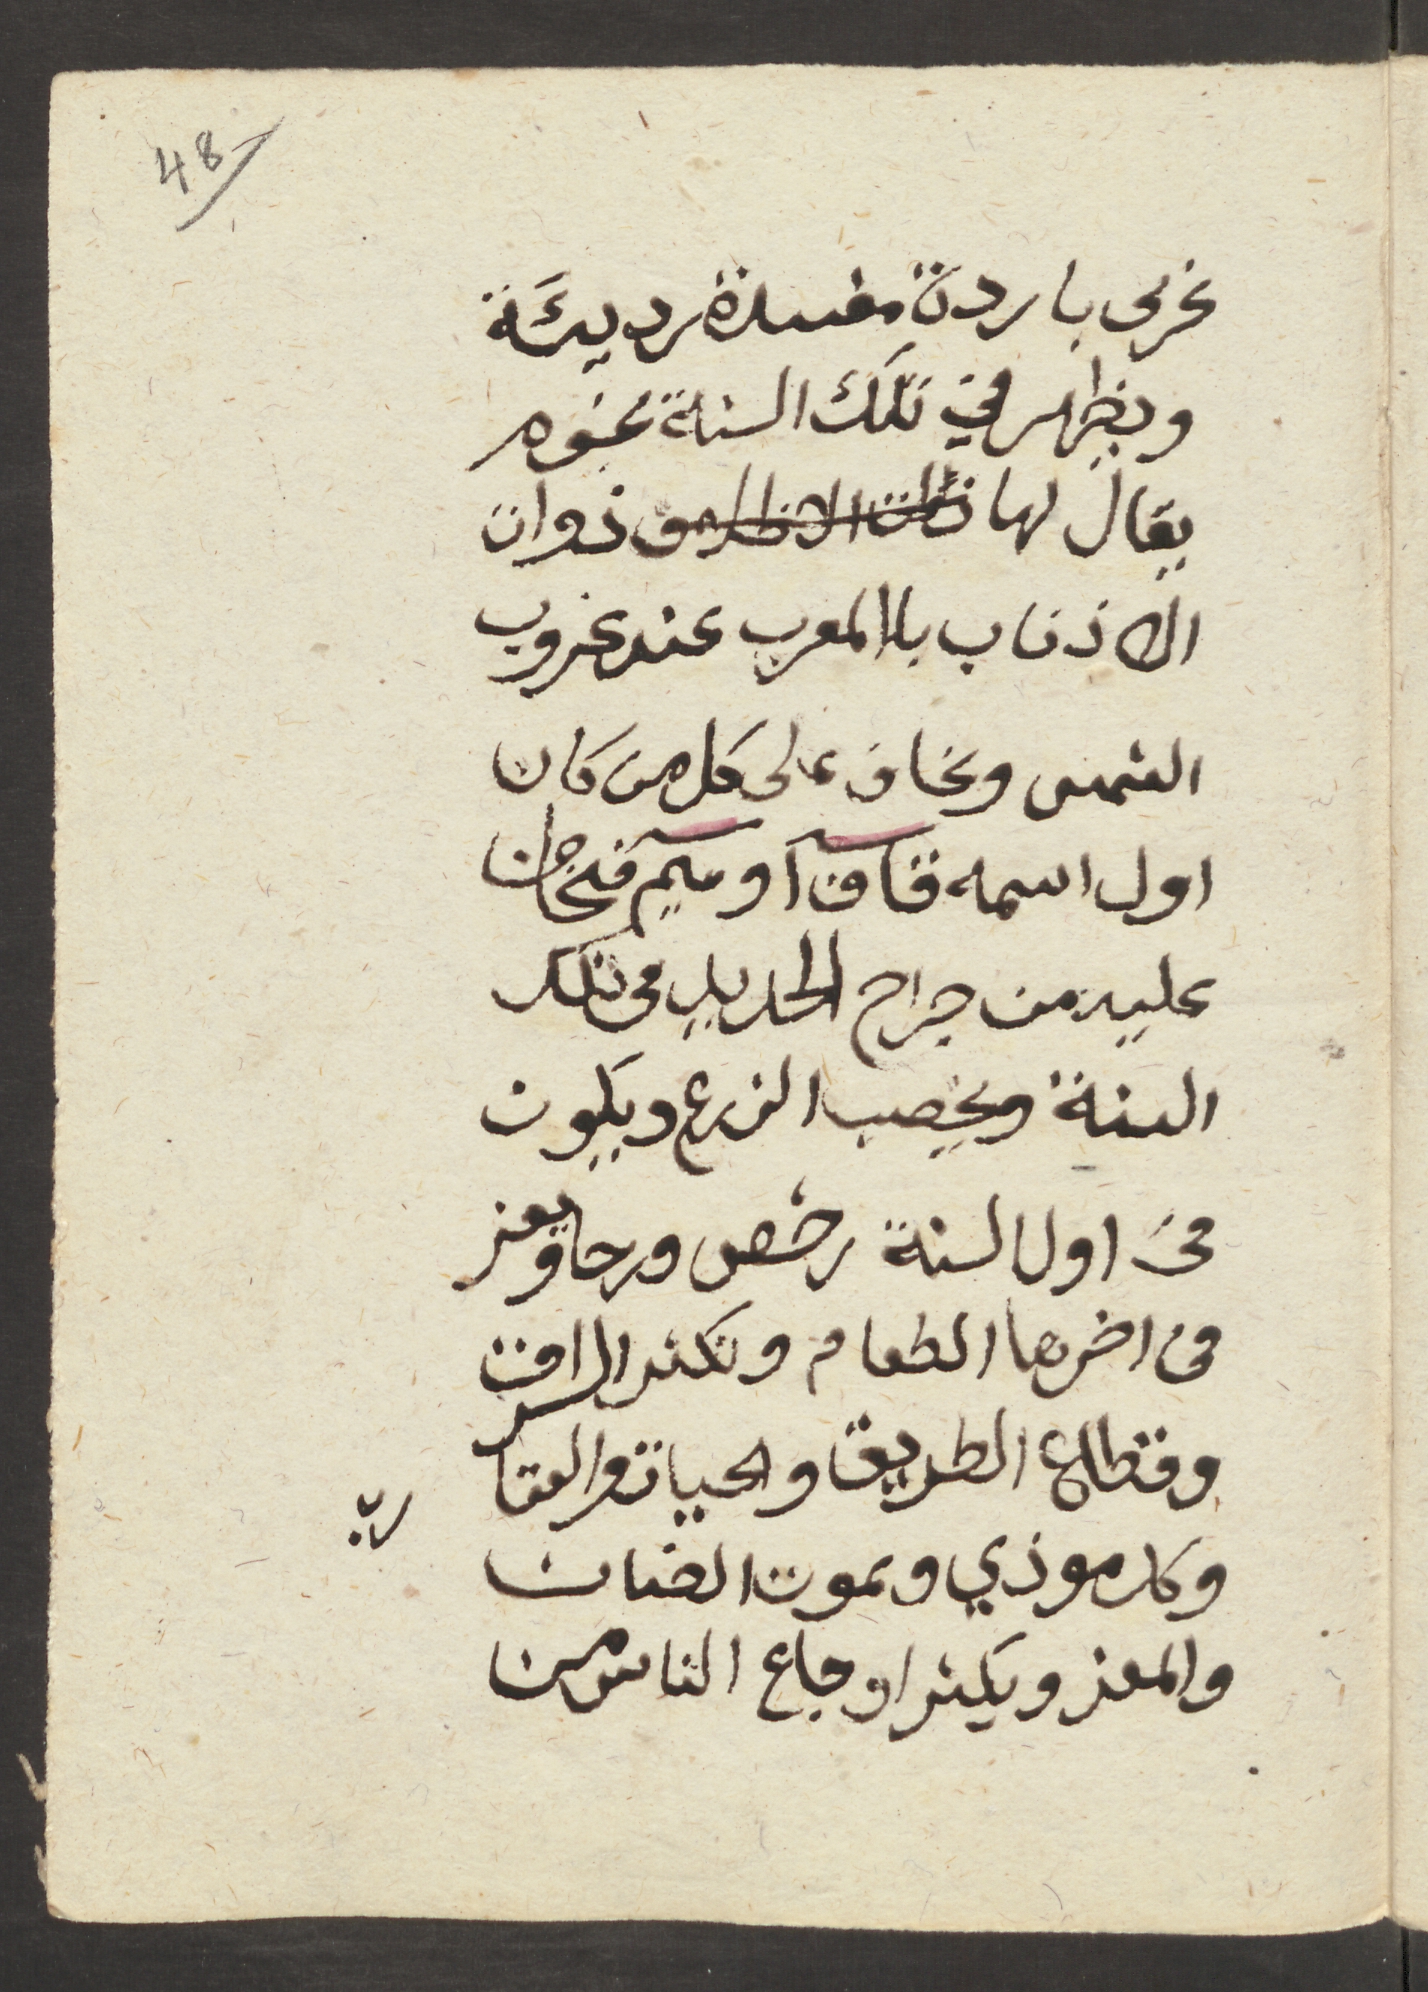 48
غربى باردة مفسدة رديئة
ويظهر في تلك السنة نجوم
يقال لها ذوات
الاذناب بالمغرب عند غروب
الشمس ويخاف على كل من كان
اول اسمه قاف او ميم فيخاف
عليه من جراح الحديد فى تلك
السنة ويخصب الزرع ويكون
فى اول السنة رخص ورخا ويعز
فى اخرها الطعام وتكثر السراق
وقطاع الطريق والحيات والعقا
رب
وكل موذي وتموت الضان
والمعز ويكثر اوجاع الناس من